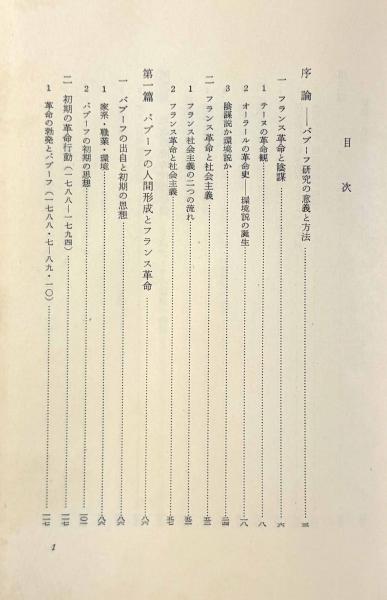 目次
序論――バブーフ研究の意義と方法……三
一 フランス革命と陰謀……六
1 テーヌの革命観……八
2 オーラールの革命史――環境説の誕生……一八
3 陰謀説か環境説か……三四
二 フランス革命と社会主義……五一
1 フランス社会主義の二つの流れ……五一
2 フランス革命と社会主義……五七
第一篇 バブーフの人間形成とフランス革命……八六
一 バブーフの出自と初期の思想……八六
1 家系・職業・環境……八六
2 バブーフの初期の思想……一〇一
二 初期の革命行動(一七八八―一七九四)……一一七
1 革命の勃発とバブーフ(一七八八・七―八九・一〇)……一一七
1